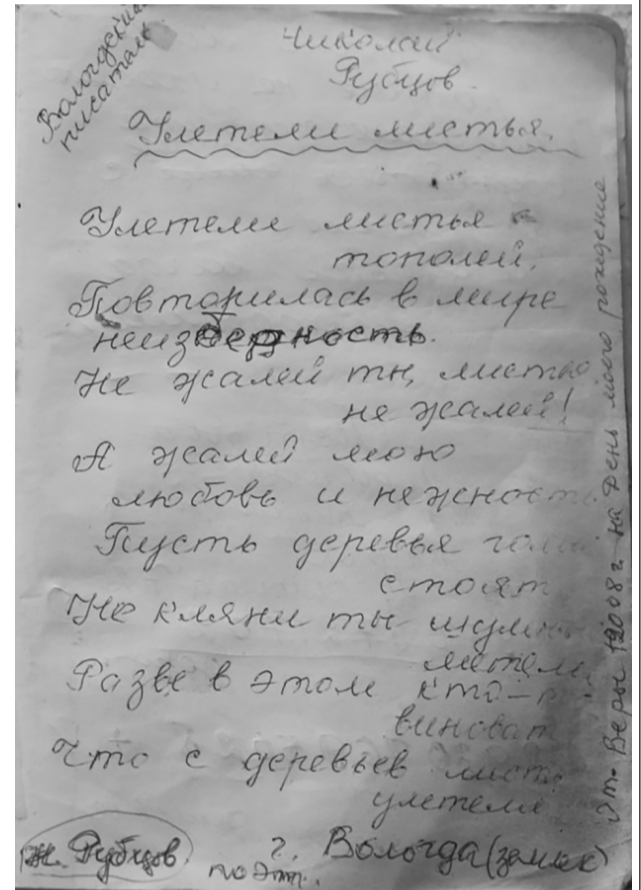 Вологдский
писатель
Николай
Рубцов.
Улетели листья.
Улетели листья с
тополей.
Повторилась в мире
неизбежность.
Не жалей ты, листья
не жалей!
А жалей мою
любовь и нежность
Пусть деревья голые
стоят
Не кляни ты шумные
метели
Разве в этом кто-то
виноват
Что с деревьев листья
улетели
Н. Рубцов
поэт.
г. Вологда (земляк)
От Веры 2008 г. на день моего рождение